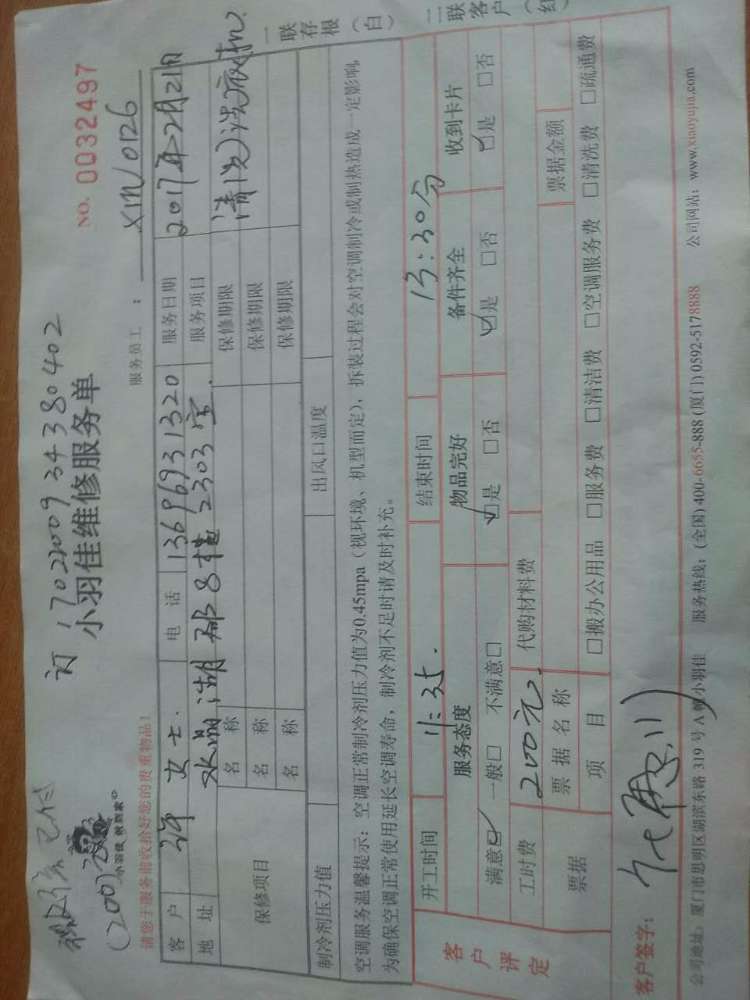 订1702210093438 0402
小羽佳维修服务单
NO. 0032497
微信已付
(200元)
小羽佳 帮到家
请您于服务前收拾好您的贵重物品!
服务员工: XIN/0126
客户 女士 电话 13696931320 服务日期 2017年2月21日
地址 水晶湖郡8楼2303室 服务项目 清洗洗衣机
保修项目
名称 保修期限
名称 保修期限
名称 保修期限
制冷剂压力值 出风口温度
空调服务温馨提示:空调正常制冷剂压力值为0.45mpa(视环境、机型而定),拆装过程会对空调制冷或制热造成一定影响,
为确保空调正常使用延长空调寿命,制冷剂不足时请及时补充。
客户评定
开工时间 11:35. 结束时间 13:30分
服务态度 物品完好 备件齐全 收到卡片
满意☑ 一般□ 不满意□ ☑是 □否 ☑是 □否 ☑是 □否
工时费 200元. 代购材料费
票据 票据名称 票据金额
项目 □搬办公用品 □服务费 □清洁费 □空调服务费 □清洗费 □疏通费
客户签字:
公司地址:厦门市思明区湖滨东路319号A幢小羽佳 服务热线:(全国)400-6655-888 (厦门)0592-5178888 公司网站:www.xiaoyujia.com
一联存根(白)
二联客户(红)